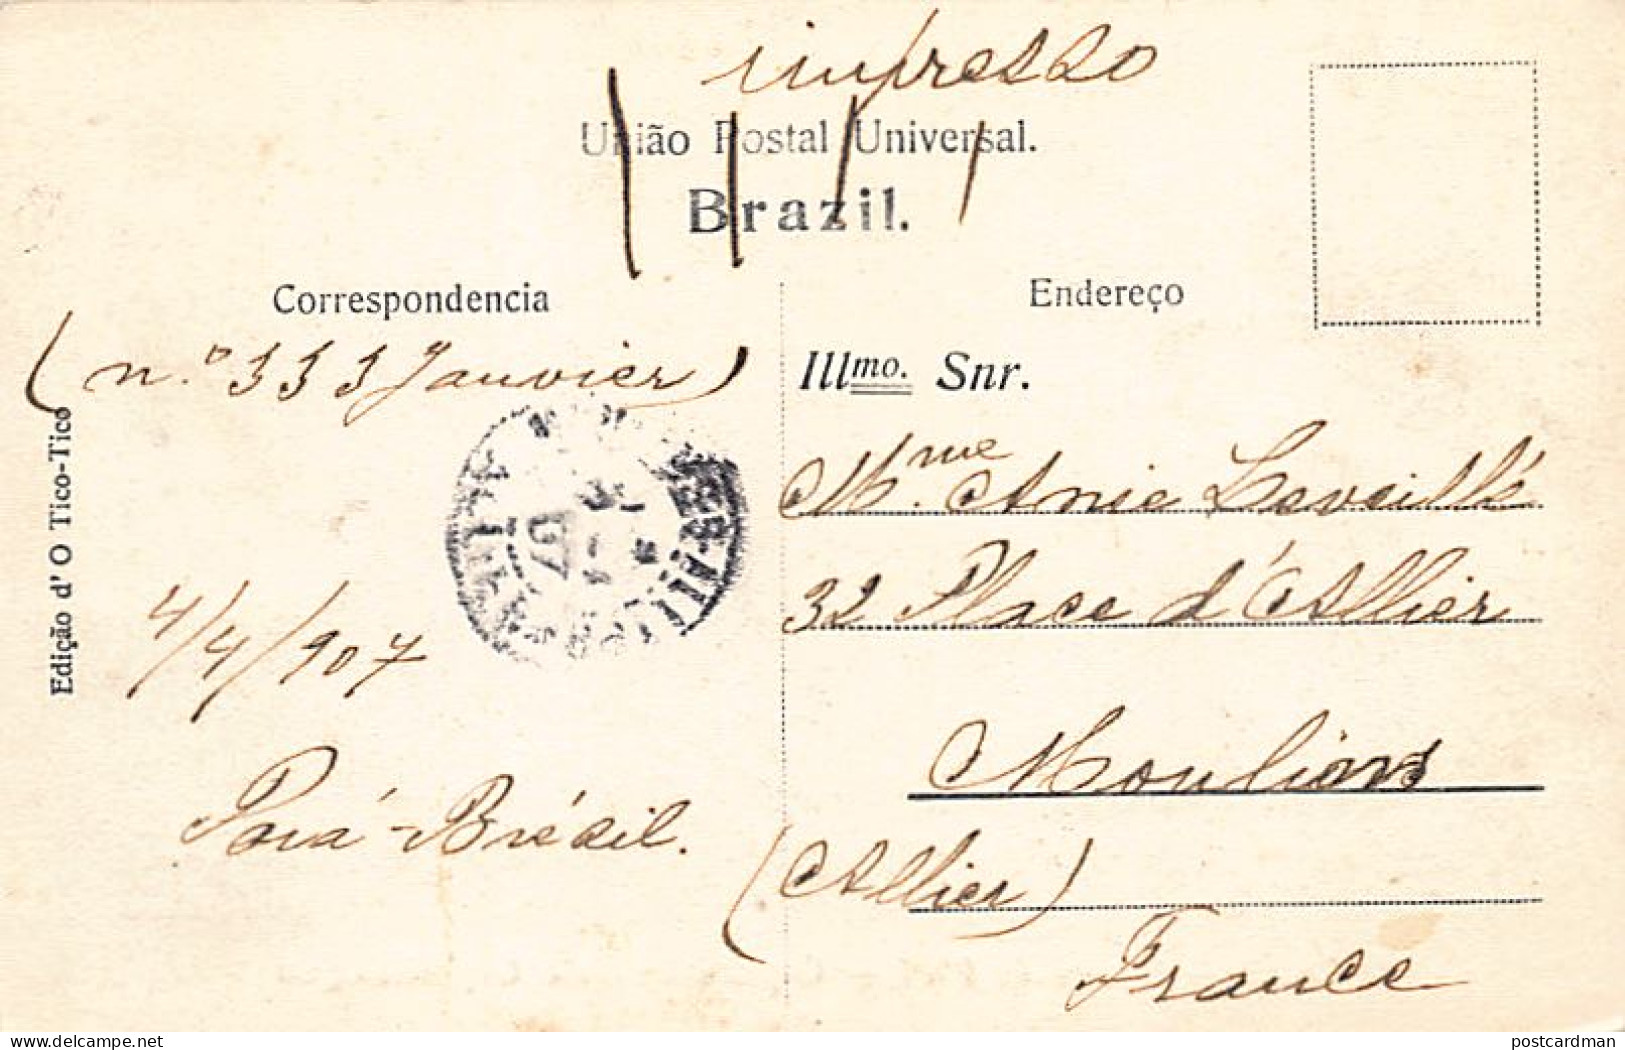 impresso
União Postal Universal.
Brazil.
Correspondencia
Endereço
(n.º 333 Janvier)
Illmo. Snr.
Mme. Anie Leveillé
32 Place d'Allier
4/4/907
Edição d' O Tico-Tico
07
Moulins
Pará-Brésil.
(Allier)
France
delcampe.net
postcardman